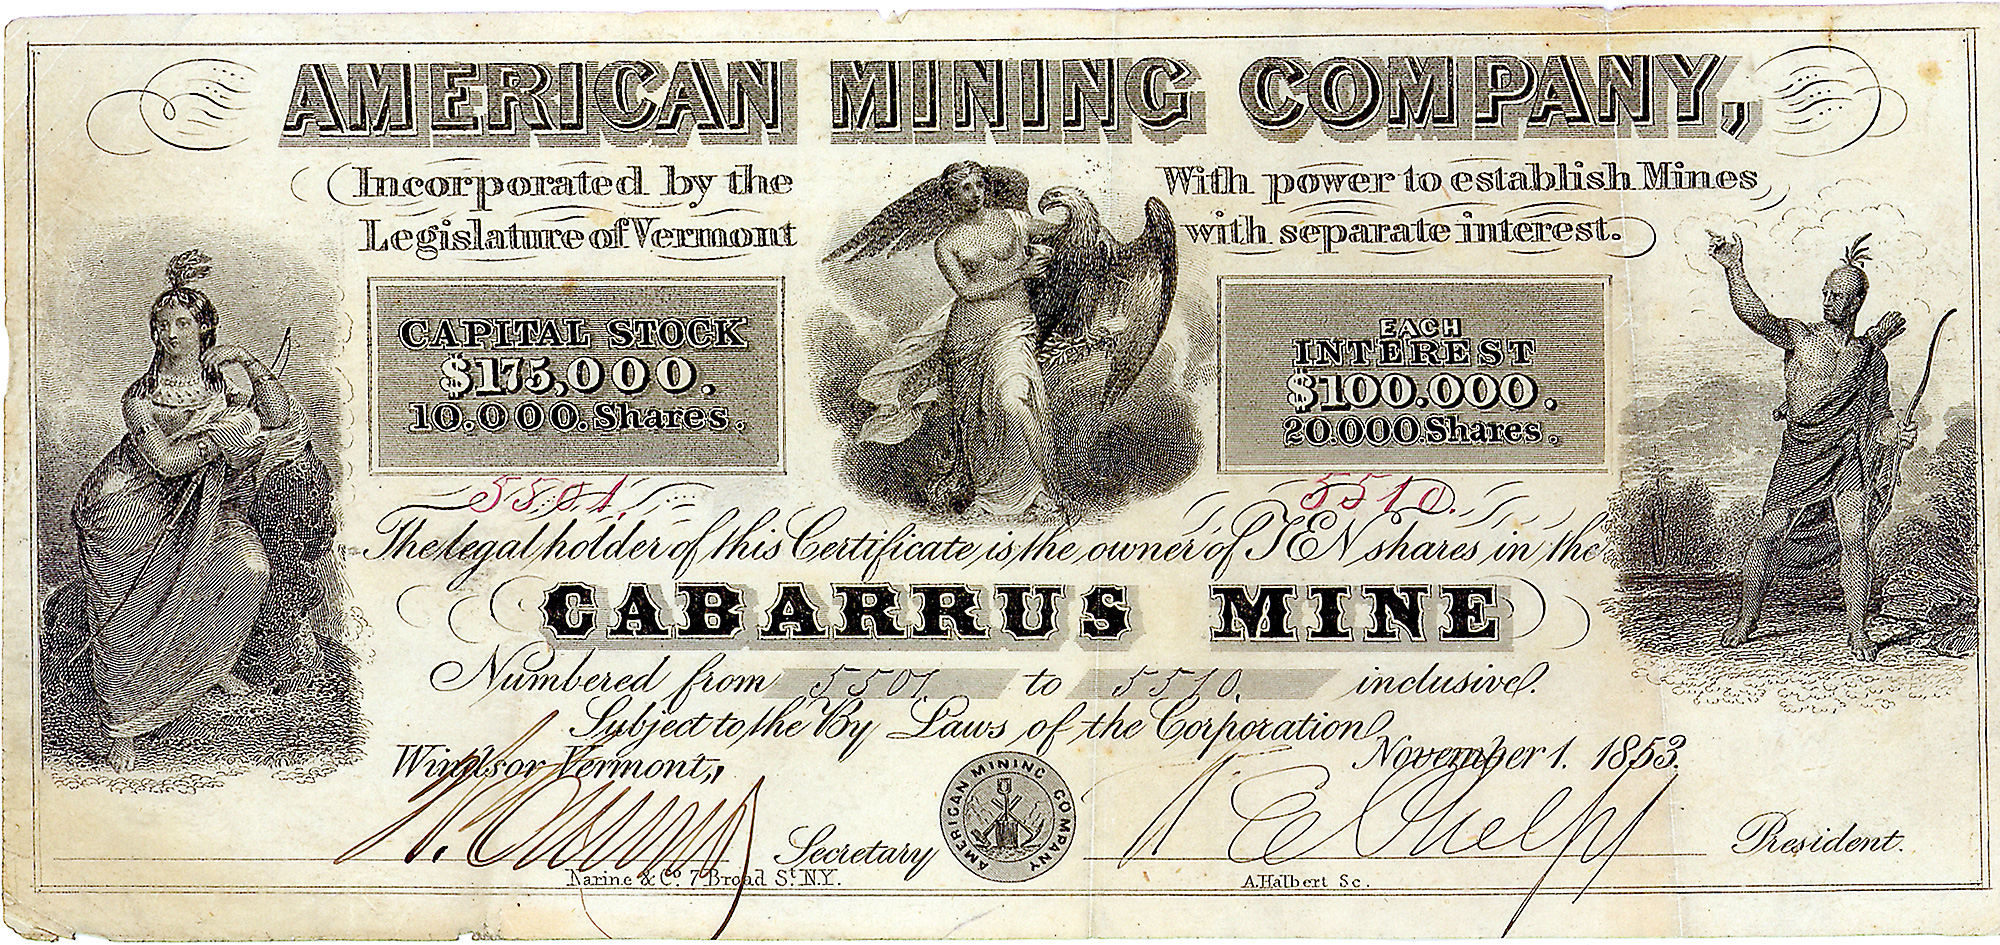 AMERICAN MINING COMPANY,
Incorporated by the
Legislature of Vermont
With power to establish Mines
with separate interest.
CAPITAL STOCK
$175,000.
10.000. Shares.
EACH
INTEREST
$100.000.
20.000 Shares.
5501.
5510.
The legal holder of this Certificate is the owner of TEN shares in the
CABARRUS MINE
Numbered from 5501. to 5510. inclusive.
Subject to the By Laws of the Corporation
Windsor Vermont,
November 1. 1853.
Secretary
AMERICAN MINING COMPANY
President.
Narine & Co. 7 Broad St. N.Y.
A. Halbert Sc.